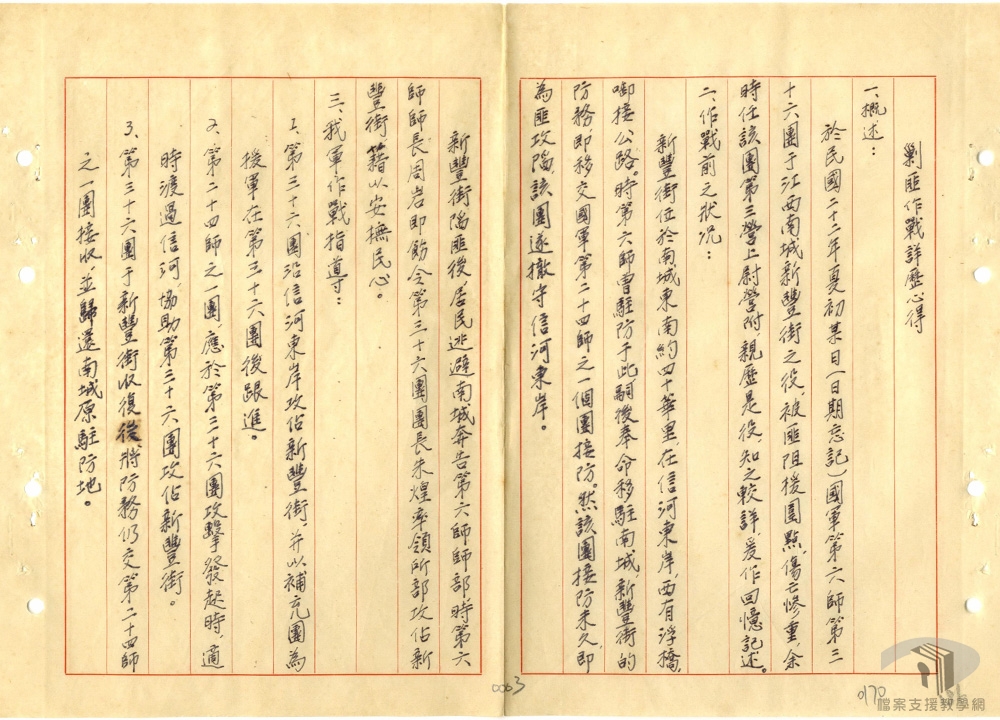 剿匪作戰詳歷心得
一、概述：
於民國二十二年夏初某日（日期忘記）國軍第六師第三
十六團于江西南城新豐街之役，被匪阻援圍點，傷亡慘重，余
時任該團第三營上尉營附，親歷是役，知之較詳，爰作回憶記述。
二、作戰前之狀况：
新豐街位於南城東南約四十華里，在信河東岸，西有浮橋，
啣接公路。時第六師曾駐防于此，嗣後奉命移駐南城，新豐街的
防務，即移交國軍第二十四師之一個團接防。然該團接防未久，即
為匪攻陷，該團遂撤守信河東岸。
新豐街陷匪後，居民逃避南城奔告第六師師部，時第六
師師長周岩即飭令第三十六團團長朱煌率領所部攻佔新
豐街，藉以安撫民心。
三、我軍作戰指導：
1、第三十六團沿信河東岸攻佔新豐街，并以補充團為
後軍在第三十六團後跟進。
2、第二十四師之一團，應於第三十六團攻擊發起時，適
時渡過信河，協助第三十六團攻佔新豐街。
3、第三十六團于新豐街收復後將防務仍交第二十四師
之一團接收，並歸還南城原駐防地。
0063
0170
檔案支援教學網